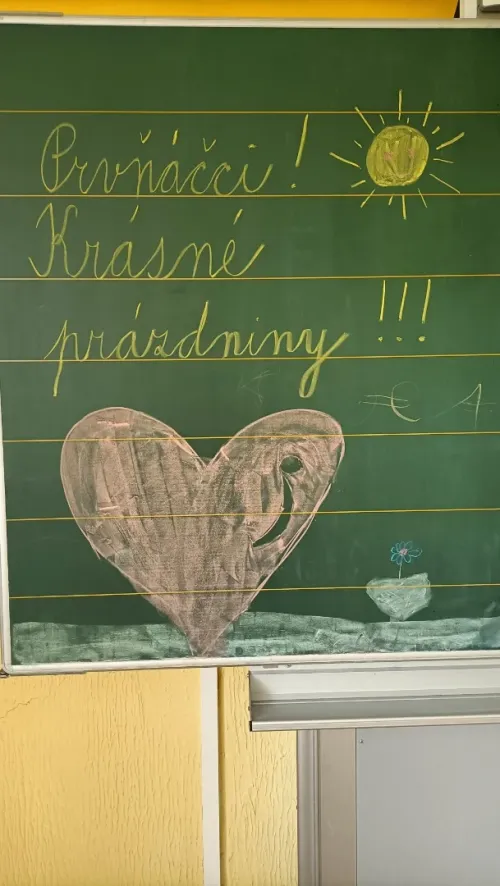 Prvňáčci!
Krásné
prázdniny !!!
€ A